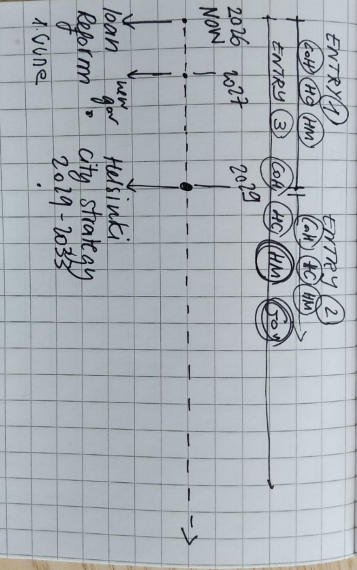 ENTRY 1
CoH HC HM
ENTRY 2
CoH HC HM
ENTRY 3 CoH HC HM
2026
NOW
2027
2029
loan
Reform
1. June
new
gov
Helsinki
city strategy
2029 - 2033